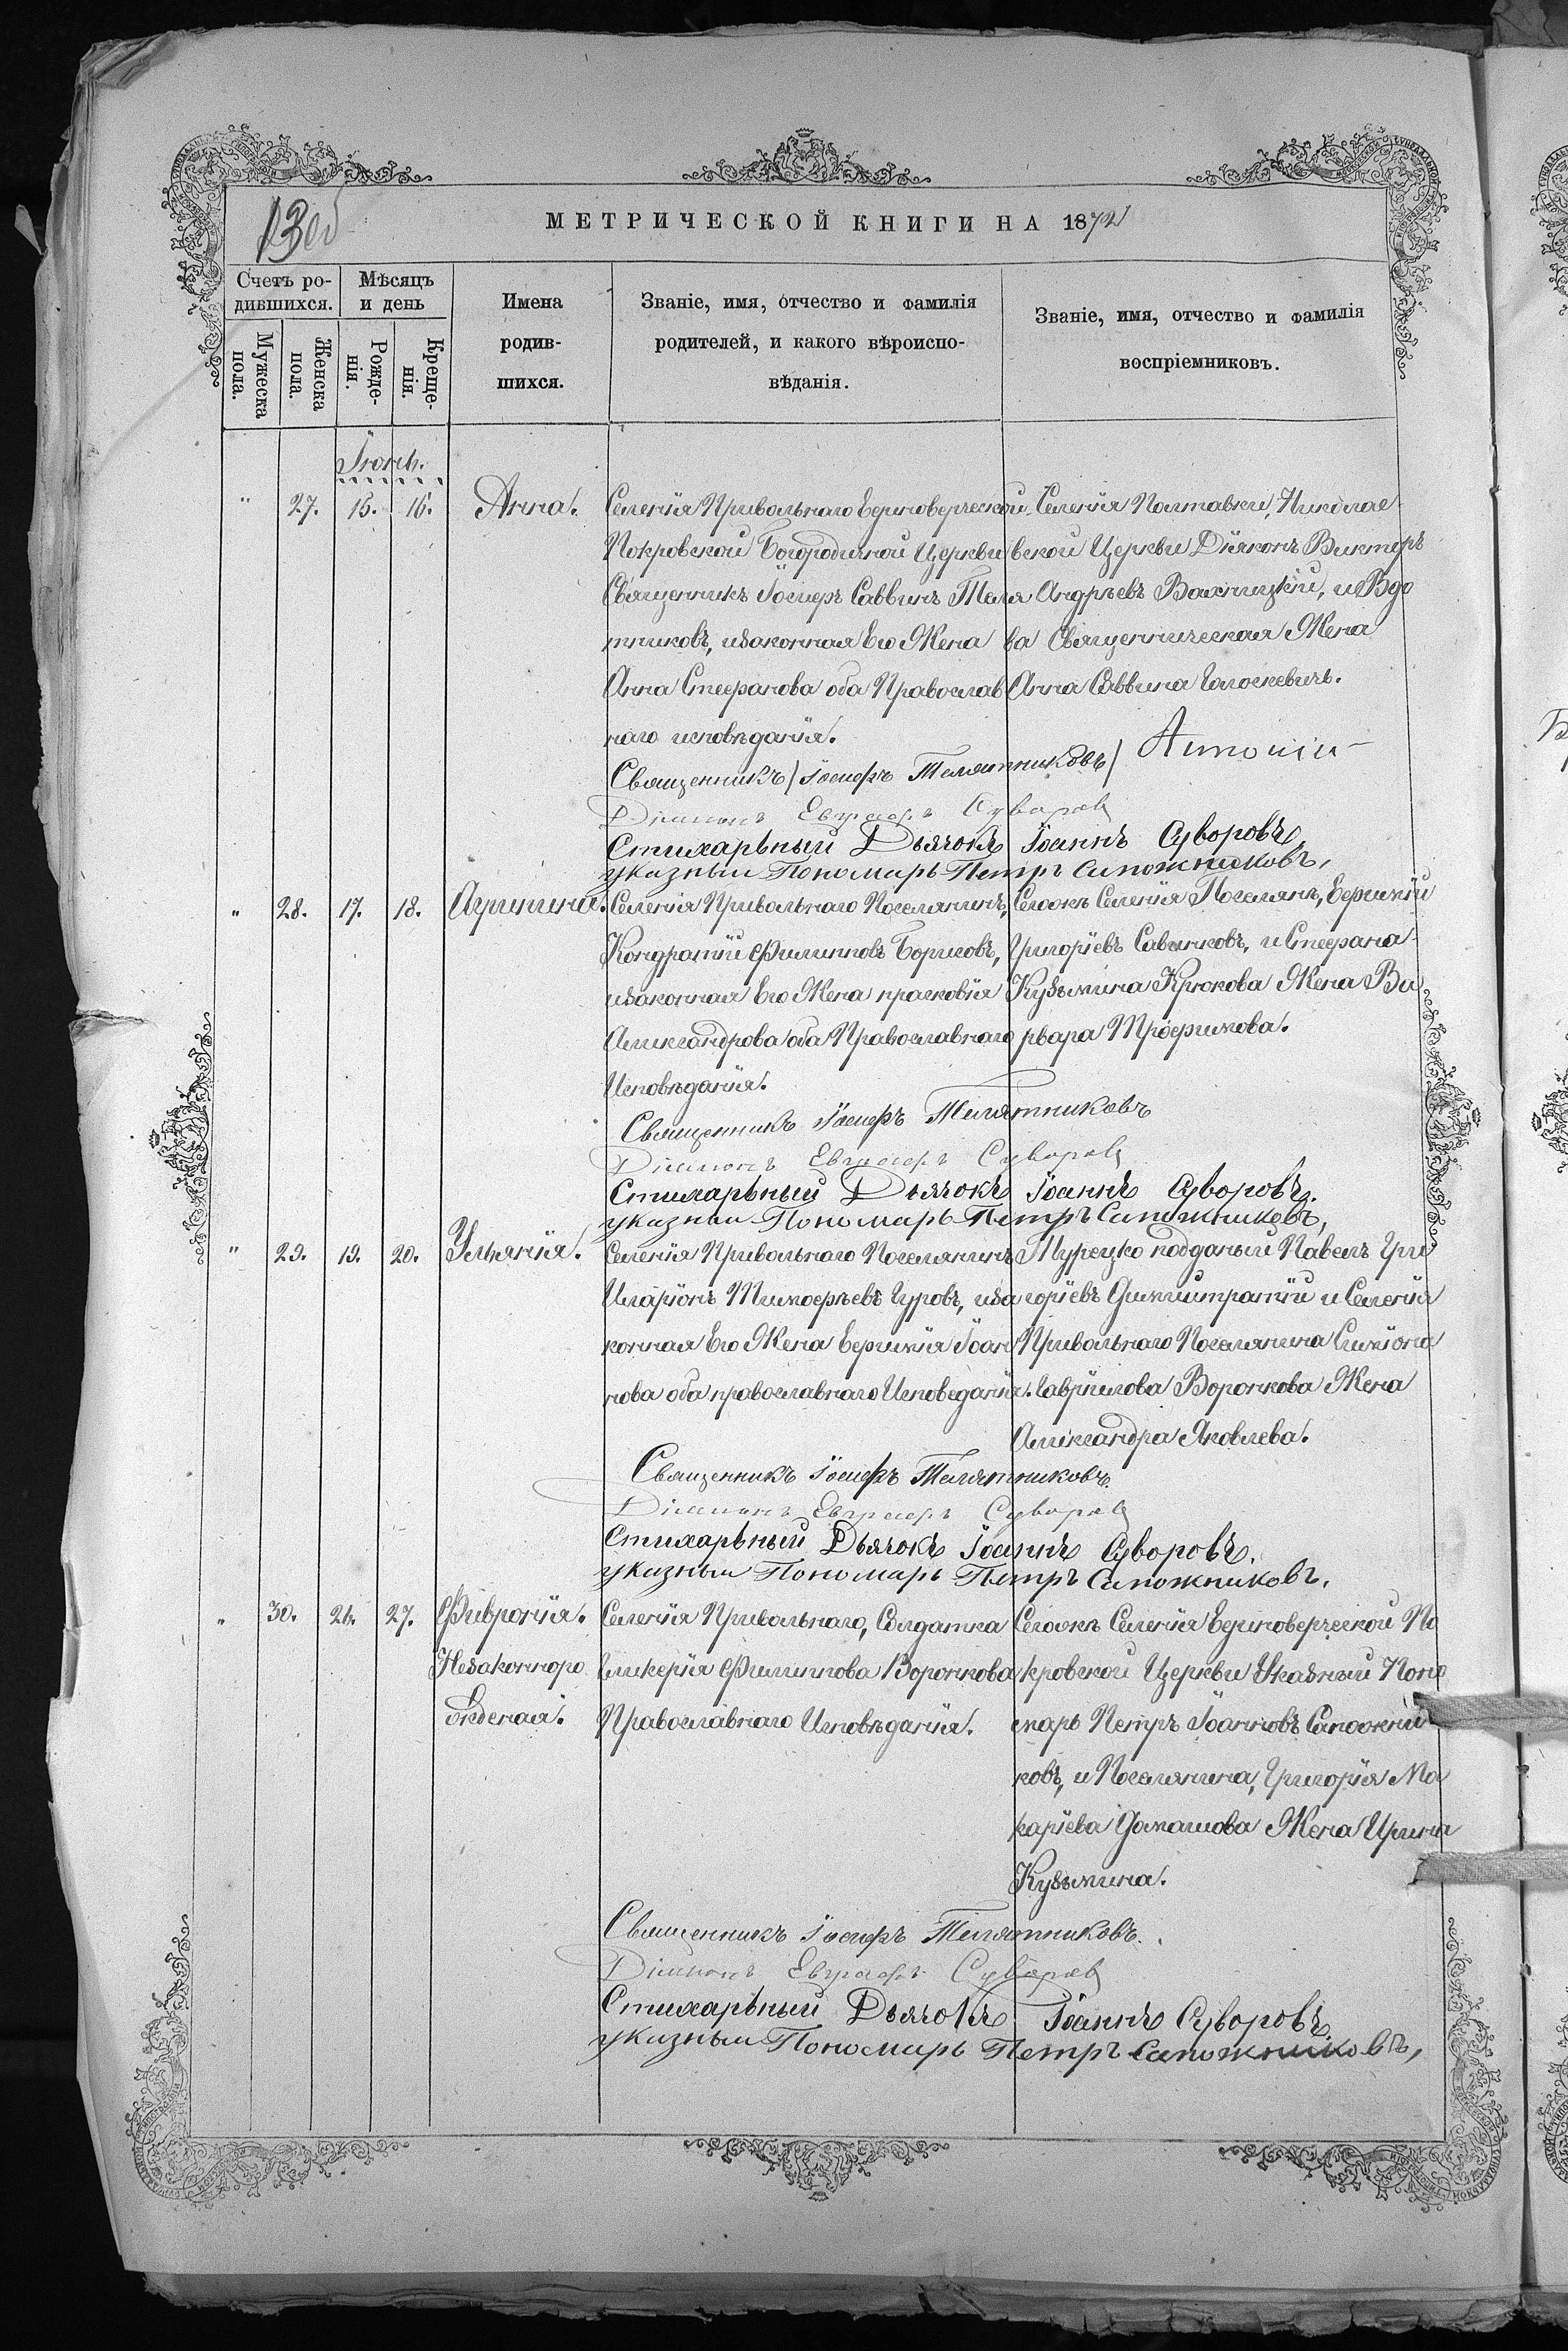 13об
МЕТРИЧЕСКОЙ КНИГИ НА 1872
Счетъ ро-
дившихся.
Мѣсяцъ
и день
Мужеска
пола.
Женска
пола.
Рожде-
нія.
Креще-
нія.
Имена
родив-
шихся.
Званіе, имя, отчество и фамилія
родителей, и какого вѣроиспо-
вѣданія.
Званіе, имя, отчество и фамилія
воспріемниковъ.
Іюнь.
" 27. 15. 16. Анна.
Селенія Привольнаго Единоверческой
Покровской Богородичной Церкви
Священникъ Іосифъ Саввинъ Теля
тниковъ, изаконная Его Жена
Анна Стефанова оба Православ
наго исповѣданія.
Селенія Полтавки, Николае
вской Церкви Діяконъ Викторъ
Андрѣевъ Вахницкій, и Вдо
ва Священническая Жена
Анна Саввина
Священникъ Іосифъ Телятниковъ
Діаконъ Евграфъ Суворов
Стихарьный Дьячокъ Іоаннъ Суворовъ,
указный Пономарь Петръ Сапожниковъ,
" 28. 17. 18. Агрипина.
Селенія Привольнаго Поселянинъ,
Кондратій Филиповъ Борисовъ,
изаконная Его Жена прасковія
Александрова оба Православнаго
Исповѣданія.
Селенія Поселянъ, Ефимій
Григоріевъ Савинковъ, и Стефана
Кузьмина Крюкова Жена Ва
рвара Трофимова.
Священникъ Іосифъ Телятниковъ
Діаконъ Евграфъ Суворов
Стихарьный Дьячокъ Іоаннъ Суворовъ.
указный Пономарь Петръ Сапожниковъ,
" 29. 19. 20. Ульянія.
Селенія Привольнаго Поселянинъ
Иларіонъ Тимофѣевъ Гуровъ, иза
конная Его Жена Ефимія Іоан
нова оба православнаго Исповеданія.
Турецко подданый Павелъ Гри
горіевъ и Селенія
Привольнаго Поселянина Симіона
Гавріилова Воронкова Жена
Александра Яковлева.
Священникъ Іосифъ Телятниковъ.
Діаконъ Евграфъ Суворов
Стихарьный Дьячокъ Іоаннъ Суворовъ.
указный Пономарь Петръ Сапожниковъ.
" 30. 26. 27. Фивронія.
Незаконноро
жденая.
Селенія Привольнаго, Солдатка
Гликерія Филиппова Воронкова
Православнаго Исповѣданія.
Селенія Единоверческой По
кровской Церкви Указный Поно
марь Петръ Іоанновъ Сапожни
ковъ, и Поселянина, Григорія Ма
каріева Жена Ирина
Кузьмина.
Священникъ Іосифъ Телятниковъ.
Діаконъ Евграфъ Суворов
Стихарьный Дьячокъ Іоаннъ Суворовъ.
указный Пономарь Петръ Сапожниковъ,